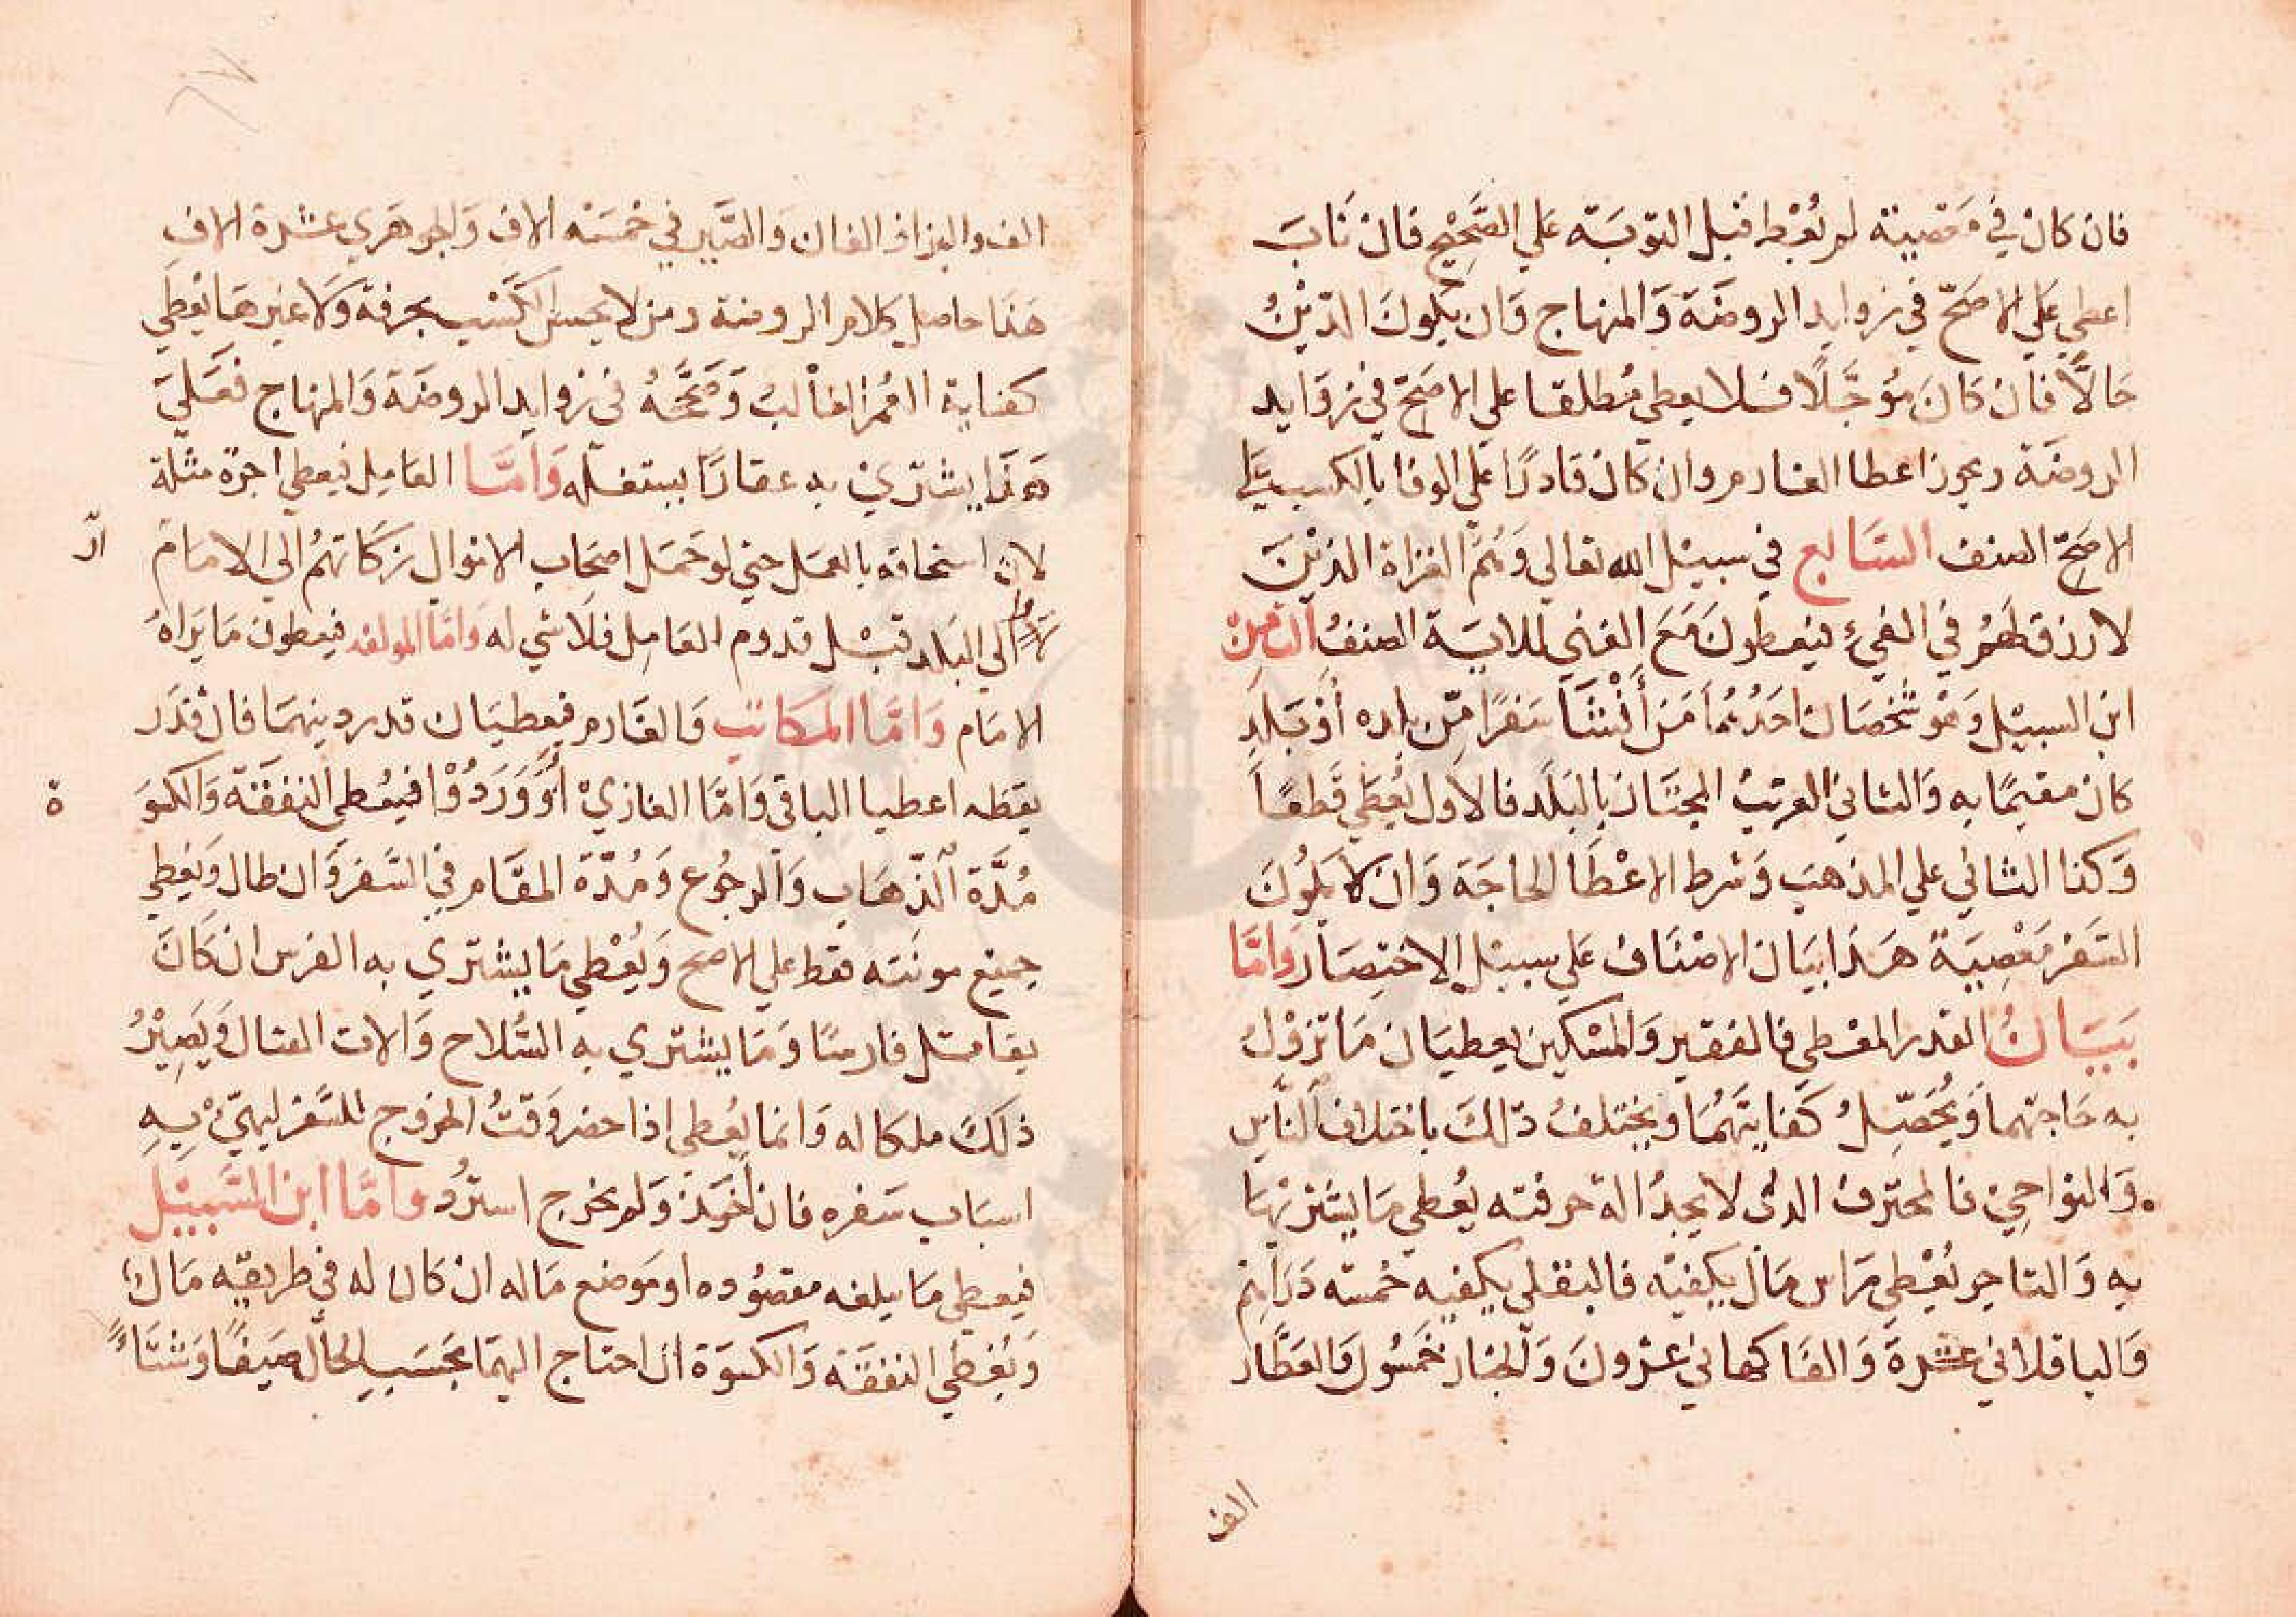 فان كان في مَعْصِية لم يُعْط قبل التوبَة عَلي الصَّحِيْح فان تَابَ
اعطي عَلي الاصَحّ في زوايد الروضَة وَالمنهاج وَان يكونَ الدّيْنُ
حَالًّا فان كانَ مُؤَجَّلًا فلا يعطي مُطلقا علي الاصَح في زوَايد
الروضَة ويجوز اعطا الغارم وان كان قَادرًا عَلي الوفا بالكسب عَلي
الاصَحّ الصنف السَّابع في سبيْل الله تعالي وَهُمُ الغزاة الذيْنَ
لا رزق لهُمْ في الفيْءِ فيُعطونَ مَعَ الغني للايَة الصنفُ الثامِنْ
ابن السبيْل وَهْو شخْصَان احَدُهُمَا مَن أَنْشَأَ سَفرًا مِّن بلده أوْ بَلَدٍ
كان مقيمًا به وَالثاني الغريبُ المجتَاز بالبَلَد فالاول يُعْطَي قَطعًا
وَكذا الثاني علي المذهب وَشرط الاعْطَا الحاجَة وَان لا يكُونَ
السَفر مَعْصِيَة هَذا بيَان الاصْنَاف عَلي سبيْل الاختِصَار وَامَّا
بيَانُ القدر المعْطي فالفقير وَالمسْكين يعطيَان مَا تزوْل
به حَاجتهما وَيُحَصِّلُ كفايتَهُمَا ويختلفُ ذلكَ باختلاف النَّاسِ
وَالنواحِيْ فالمحترف الذي لا يجدُ الة حرفته يُعْطي مَا يشتريْهَا
به وَالتاجر يُعْطي رَاس مَال يكفيْه فالبقلي يكفيه خمْسَة دَرَاهِم
وَالباقلاني عَشرة وَالفاكهاني عشرونَ وَالخباز خمْسُون وَالعَطَّار
الف
الف والبزاز الفان وَالصَّيرفي خمْسَة الاف وَالجوهَري عشرة الاف
هَذا حاصل كلام الروضة ومن لا يحسن الكسْب بحرفة وَلا غيرهَا يعْطي
كفاية العُمر الغالبْ وَصَحَّحَهُ في زوايد الروضَة وَالمنهاج فعَليَ
هَذا يشتريْ به عقارًا يستغلّه وَامَّا العَامِل فيُعطي اجرَة مثلة
لان استحاقه بالعمل حتي لو حَمَل اصحَاب الاموَال زكاتهمُ الي الامَام
الي البَلد قبْل قدوم العَامِل فلا شي له وَامَّا المولفه فيعطون مَا يرَاهُ
الامَام وَامَّا المكاتب وَالغَارم فيعطيَان قدر دينهمَا فان قدَر
يعطه اعطيا الباقي وَامَّا الغازيْ فيُعْطي النفقَة وَالكسْوَ
ة
مُدَّة الذّهَاب وَالرجُوع وَمُدّة المقَام في السَّفر وَان طال وَيُعْطي
جميْع مونته فقط علي الاصح وَيُعْطي مَا يشتَري به الفرس ان كَانَ
يقاتل فارسًا وَمَا يشتري به السِّلاح وَالات القتال وَيَصِيْرُ
ذلكَ ملكا له وَانما يُعْطي اذا حضر وَقتُ الخروج للسَّفر ليهيّئ بِهِ
اسبَاب سَفره فان أخَذ وَلم يخرج استرُد وَامَّا ابن السَّبيْل
فيعطي مَا يبلغه مقصُوده او مَوضع مَاله ان كان له في طريقه مَال
وَيُعْطي النفقَة وَالكسْوَة ان احتاج اليهَا بحَسَب الحَال صَيفًا وَشتَاءً